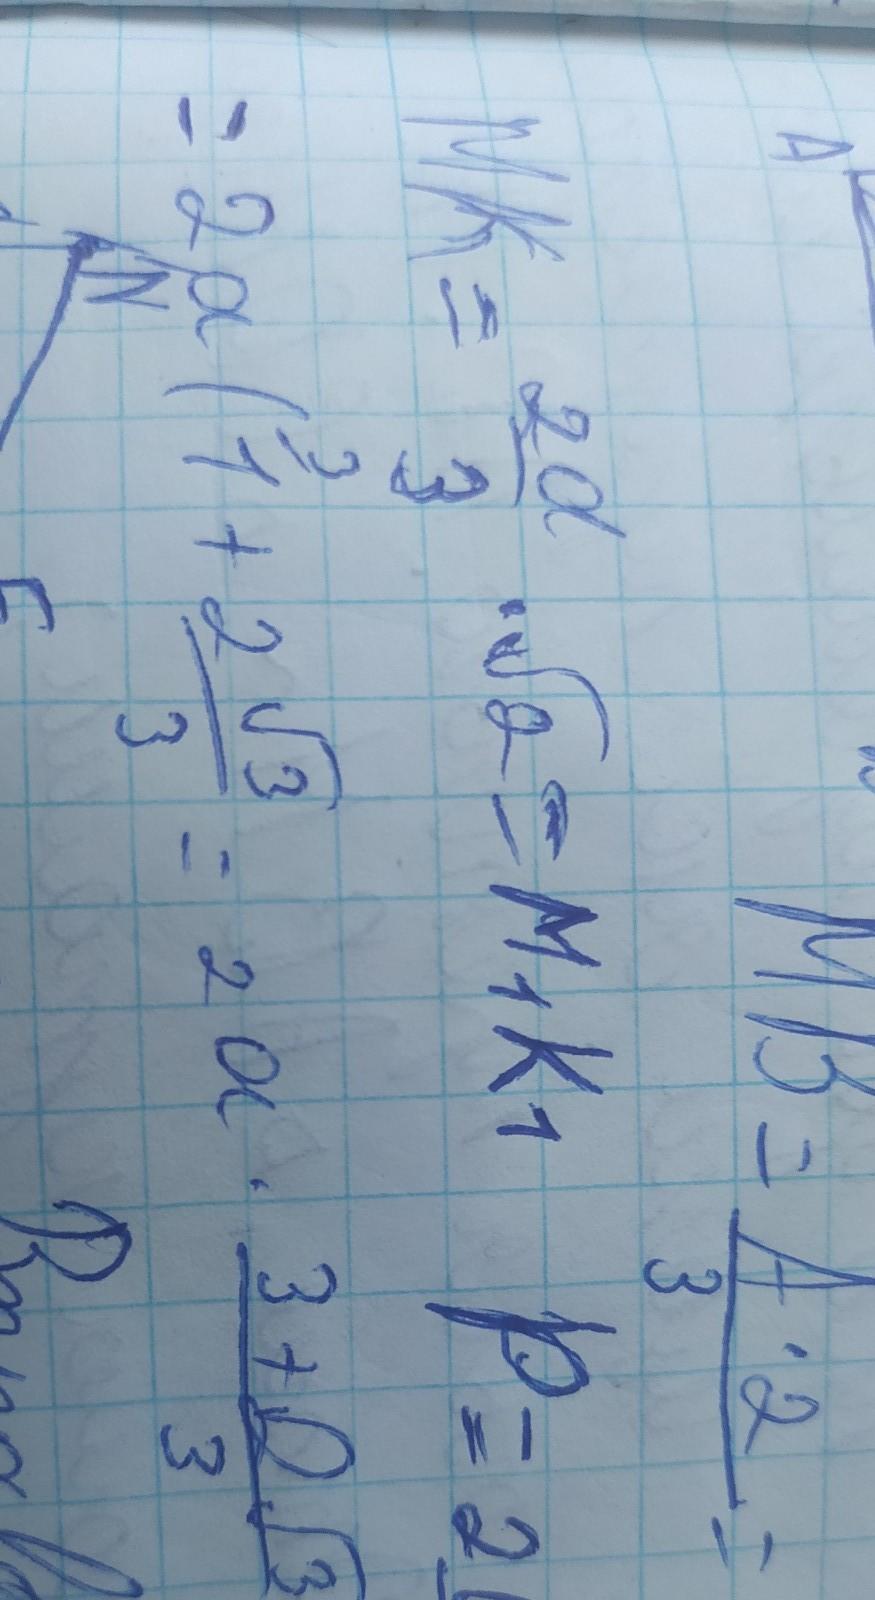 A
MB = A·2/3 =
MK = 2a/3 · √2 = M1K1 p = 2
= 2a(1 + 2√3/3) = 2a · 3+2√3/3
N